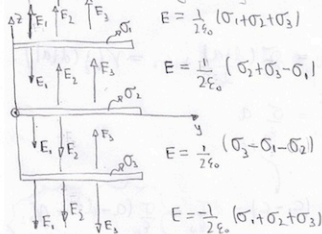 z E₁ E₂ E₃ σ₁ E = 1/2ε₀ (σ₁+σ₂+σ₃)
E₁ E₂ E₃ σ₂ E = 1/2ε₀ (σ₂+σ₃-σ₁)
y
E₁ E₂ E₃ σ₃ E = 1/2ε₀ (σ₃-σ₁-σ₂)
E₁ E₂ E₃ E = -1/2ε₀ (σ₁+σ₂+σ₃)